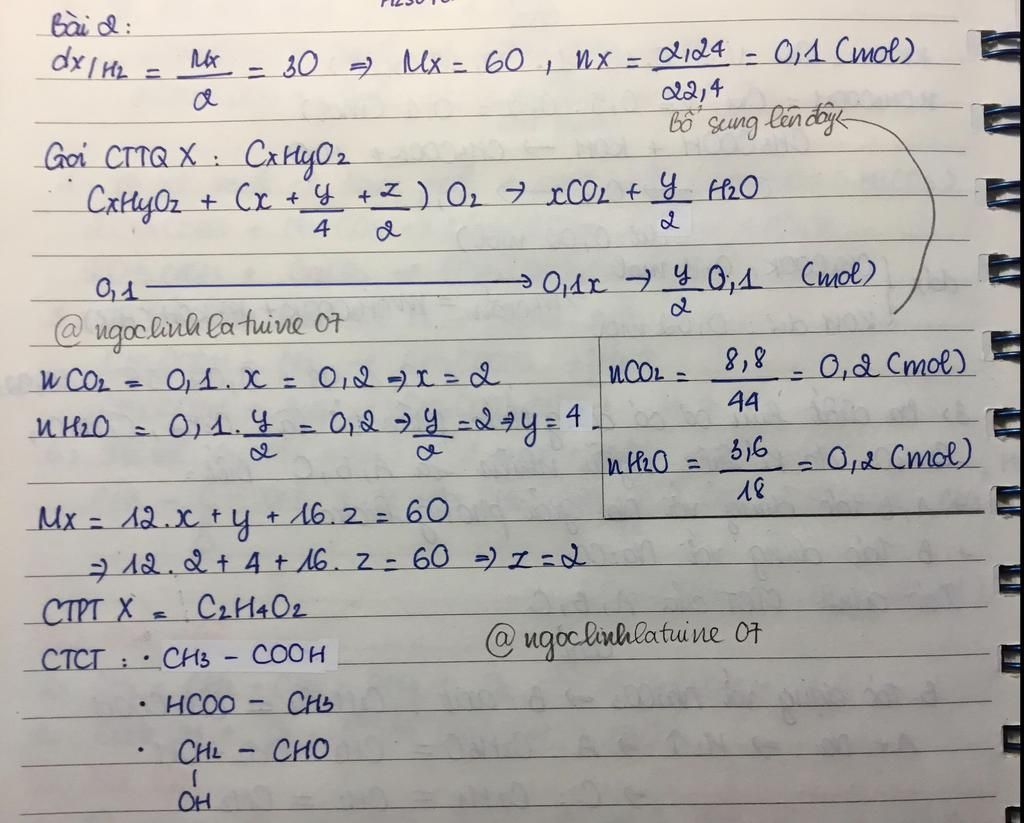 Bài 2:
dx/H2 = Mx/2 = 30 ⇒ Mx = 60 , nx = 2,24/22,4 = 0,1 (mol)
Bổ sung lên đây
Gọi CTTQ X : CxHyOz
CxHyOz + (x + y/4 + z/2) O2 → xCO2 + y/2 H2O
0,1 → 0,1x → y/2 0,1 (mol)
@ngoclinhlatuine 07
nCO2 = 0,1 . x = 0,2 ⇒ x = 2
nH2O = 0,1 . y/2 = 0,2 ⇒ y/2 = 2 ⇒ y = 4
nCO2 = 8,8/44 = 0,2 (mol)
nH2O = 3,6/18 = 0,2 (mol)
Mx = 12.x + y + 16.z = 60
⇒ 12.2 + 4 + 16.z = 60 ⇒ z = 2
CTPT X = C2H4O2
@ngoclinhlatuine 07
CTCT : • CH3 – COOH
• HCOO – CH3
• CH2 – CHO
OH